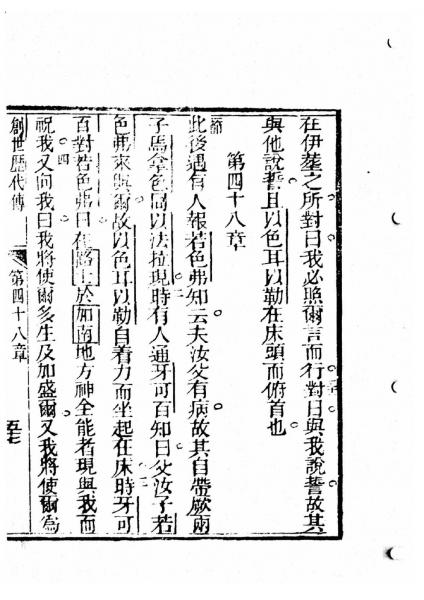 在伊塟之所對曰我必照爾言而行對曰與我說誓故其
與他說誓且以色耳以勒在床頭而俯首也
第四十八章
節
此後遇有人報若色弗知云夫汝父有病故其自帶厥兩
子馬拿色同以法拉現時有人通牙可百知曰父汝子若
色弗來與爾故以色耳以勒自着力而坐起在床時牙可
百對若色弗曰在路士於加南地方神全能者現與我而
祝我又向我曰我將使爾多生及加盛爾又我將使爾為
創世歷代傳 第四十八章